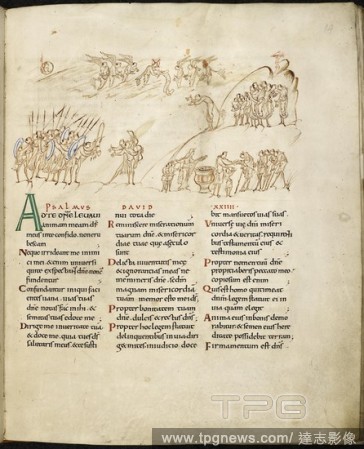 PSALMUS DAVID XXIIII
AD TE DÑE LEUAUI
animam meam dš
meus in te confido. non eru
bescam
Neque irrideant me inimi
ci mei & enim uniuersi
qui te expectant dñe non con
fundentur
Confundantur iniqui faci
entes uana. uias tuas
dñe notas fac mihi. &
semitas tuas edoce me
Dirige me in ueritate tua
& doce me. quia tu es dš
saluator meus & te susti
nui tota die
Reminiscere miserationum
tuarum dñe. & misericor
diae tuae quae a seculo
sunt
Delicta iuuentutis meae
& ignorantias meas ne
memineris dñe. secdm
magnam misericordiam
tuam memor esto mei dš
Propter bonitatem tuam
dñe. dulcis & rectus dñs
Propter hoc legem statuit
delinquentibus in uia diri
get mites in iudicio. doce
bit mansuetos uias suas
Uniuersae uiae dñi miseri
cordia & ueritas. requirenti
bus testamentum eius &
testimonia eius
Propter nomen tuum
dñe propitiaberis peccato meo
copiosum est enim
Quis est homo qui timeat
dñm legem statuit ei in
uia quam elegit
Anima eius in bonis demo
rabitur & semen eius here
ditate possidebit terram
Firmamentum est dñs
TPG
www.tpgnews.com/ 達志影像